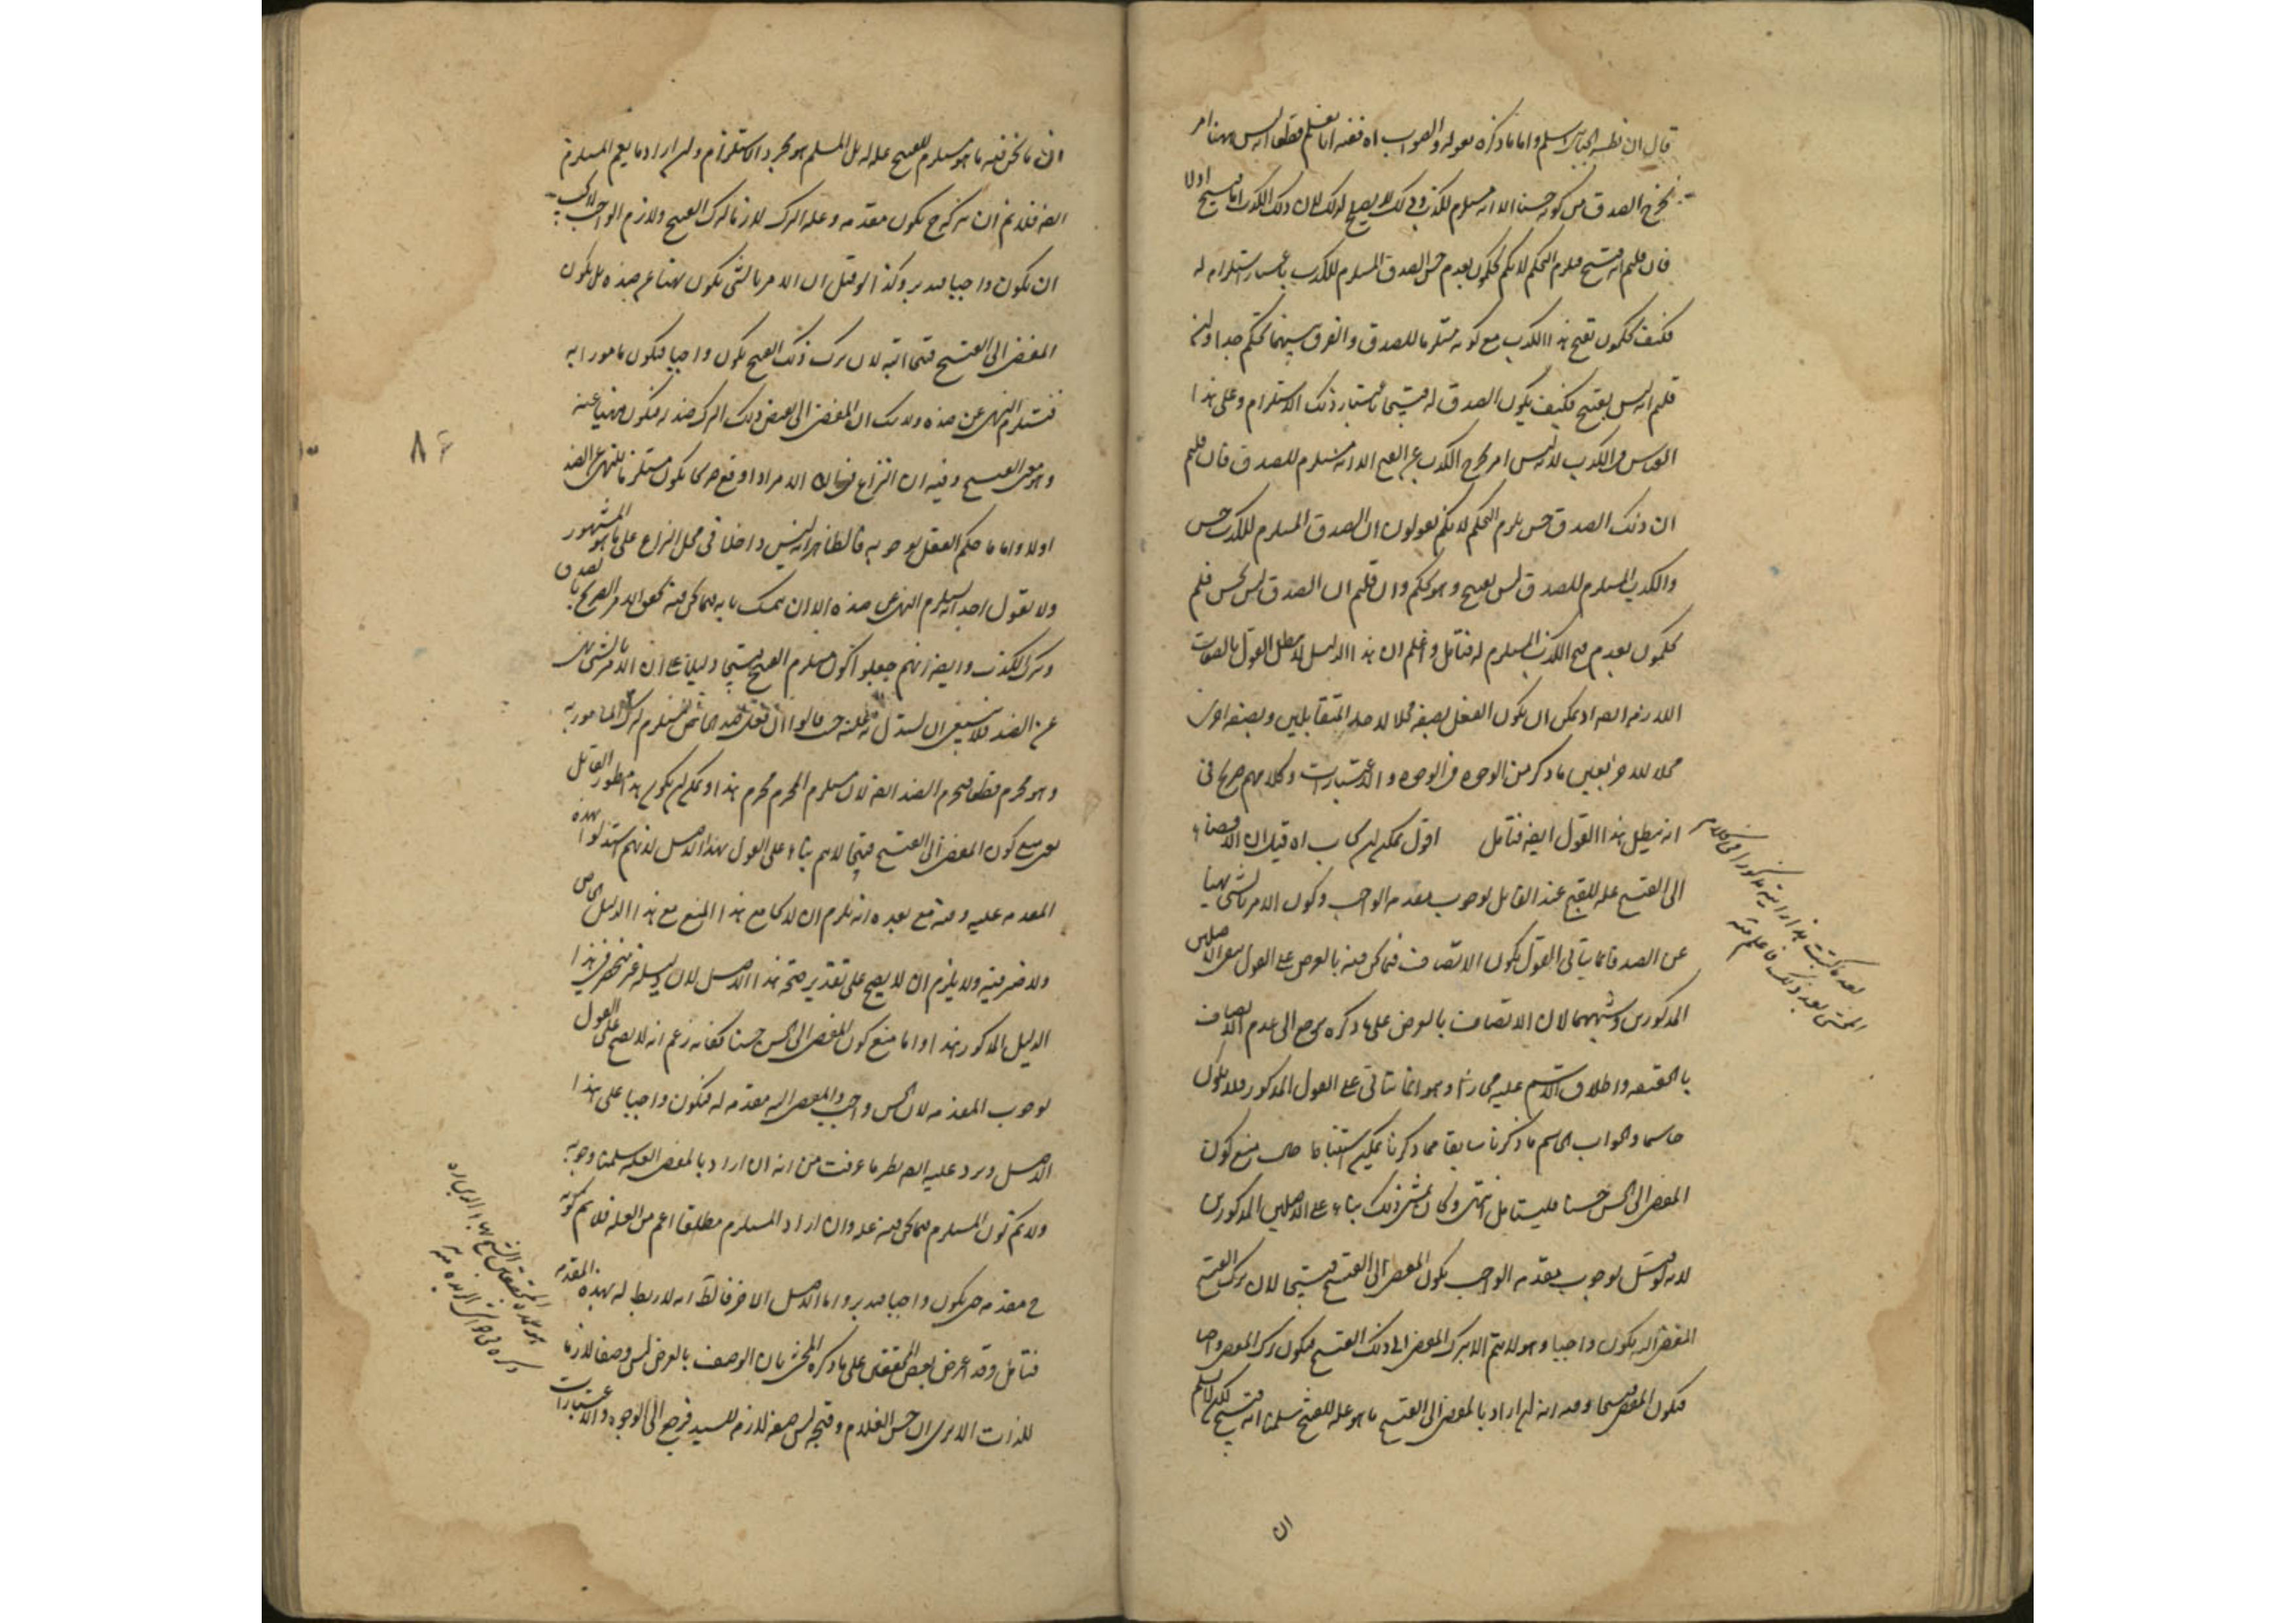 قال ان نظمه القياس اسلم واما ما ذكره بقوله والصواب اه ففيه انا نعلم قطعا انه ليس ههنا امر
يخرج الصدق من كونه حسنا الا انه مستلزم للكذب وذلك لا يصلح لذلك لان ذلك الكذب اما قبيح اولا
فان قلتم انه قبيح فيلزم التحكم لانكم تحكمون بعدم حسن الصدق المستلزم للكذب باعتبار استلزامه له
فكيف تحكمون بقبح هذا الكذب مع كونه مستلزما للصدق والفرق بينهما تحكم جدا وان
قلتم انه ليس بقبيح فكيف يكون الصدق له قبيحا باعتبار ذلك الاستلزام وعلى هذا
القياس في الكذب لانه ليس امر يخرج الكذب عن القبح الا انه مستلزم للصدق فان قلتم
ان ذلك الصدق حسن يلزم التحكم لانكم تقولون ان الصدق المستلزم للكذب حسن
والكذب المستلزم للصدق ليس بقبيح وهو تحكم وان قلتم ان الصدق ليس بحسن فلم
تحكمون بعدم قبح الكذب المستلزم له فتامل واعلم ان هذا الدليل لا يبطل القول بالصفات
اللازمة ايضا اذ يمكن ان يكون الفعل بصفة محلا لاحد المتقابلين وبصفة اخرى
محلا للاخر بعين ما ذكر من الوجوه في الوجوه والاعتبارات وكلامهم صريح في
انه يبطل هذا القول ايضا فتامل اقول يمكن ان يجاب اه قيل ان الافضاء
الى القبيح علة للقبح عند القائل بوجوب مقدمة الواجب وكون الامر بالشي نهيا
عن الضد فانما يتاتى القول بكون الاتصاف فيما نحن فيه بالعرض على القول بنفي الاصلين
المذكورين وشبههما لان الاتصاف بالعرض على ما ذكره يرجع الى عدم الاتصاف
بالحقيقة واطلاق الاسم عليه مجازا وهو انما يتاتى على القول المذكور فلا يكون
حاسما والجواب الحاسم ما ذكرنا سابقا مما ذكرنا يمكن استنباط منع كون
المفضي الى الحسن حسنا فليتامل انتهى وكان منشا ذلك بناء على الاصلين المذكورين
لانه لو قيل بوجوب مقدمة الواجب يكون المفضي الى القبيح قبيحا لان ترك القبيح
المفضى اليه يكون واجبا وهو لا يتم الا بترك المفضي الى ذلك القبيح فيكون ترك المفضي واجبا
فيكون المفضي قبيحا وفيه انه ان اراد بالمفضي الى القبيح ما هو علة للقبيح سلمنا انه قبيح لكن لا نسلم
ان
بعد ما كتبت هذا رايته مذكورا في كلام
المحشى بعد ذلك فاعلم منه
ان ما نحن فيه ما هو مستلزم للقبيح علة له بل المسلم هو مجرد الاستلزام وان اراد ما يعم المستلزم
ايضا فلا نم ان تركه ح يكون مقدمة وعلة لترك لازما لترك القبيح ولازم الواجب لا يجب
ان يكون واجبا فتدبر وكذا لو قيل ان الامر بالشئ يكون نهيا عن ضده بل يكون
المفضي الى القبيح قبيحا البتة لان ترك ذلك القبيح يكون واجبا فيكون مامورا به
فيستلزم النهي عن ضده ولا شك ان المفضي الى نقيض ذلك الترك ضد له فيكون منهيا عنه
وهو معنى القبيح وفيه ان النزاع في ان الامر اذا وقع هل يكون مستلزما للنهي عن الضد
اولا واما ما حكم العقل بوجوبه فالظاهر انه ليس داخلا في محل النزاع على ما هو المشهور
ولا يقول احد انه يستلزم النهي عن ضده الا ان يتمسك بانه فيما نحن فيه تحقق الامر الصريح بالصدق
وترك الكذب وايضا انهم جعلوا كون مستلزم القبيح قبيحا دليلا على ان الامر بالشئ نهي
عن الضد فلا ينبغي ان يستدل به حيث قالوا ان فعل الضد الخاص مستلزم لترك المامور به
وهو محرم قطعا فيحرم الضد ايضا لان مستلزم المحرم محرم هذا ويمكن ان يكون هذا منظور القائل
بعدم كون المفضي الى القبيح قبيحا لازم بناء على القول بهذا الاصل لانهم استدلوا بهذه
المقدمة عليه وفيه مع بعده انه يلزم ان لا يجامع هذا المنع مع هذا الدليل الخاص
ولا ضرر فيه ولا يلزم ان لا يصح على تقدير صحة هذا الاصل لان دليله غير منحصر في هذا
الدليل المذكور هذا واما منع كون المفضي الى الحسن حسنا فكانه زعم انه لا يصح على القول
بوجوب المقدمة لان الحسن واجب والمفضي اليه مقدمة له فيكون واجبا على هذا
الاصل ويرد عليه ايضا نظير ما عرفت من انه ان اراد بالمفضي العلة سلمنا وجوبه
ولا نم كون المستلزم فيما نحن فيه علة وان اراد المستلزم مطلقا اعم من العلة فلا نم كونه
ح مقدمة حتى يكون واجبا فتدبر واما الاصل الاخر فالظ انه لا ربط له بهذه المقدمة
فتامل وقد اعترض بعض المحققين على ما ذكره المحشي بان الوصف بالعرض ليس وصفا لازما
للذات الا ترى ان حسن الغلام وقبحه ليس صفة لازمة للسيد فرجع الى الوجوه والاعتبارات
هو عمدة المحققين الشيخ بهاء الدين
ذكره في حواشي الزبدة منه
٨٦